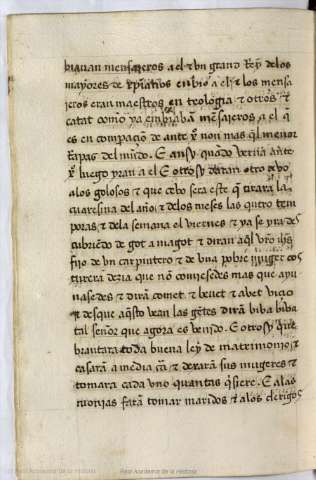 biauan mensajeros a el et vn grand Rey de los
mayores de xpianos enbio a el et los mensa
jeros eran maestros en teologia et otros et
catat como ya enbiaban mensajeros a el q
es en conpaçio de ante x non mas ql menor
Rapas del mundo. E ansy quando verna ante
x luego yran a el E otrosy daran otro
a los golosos et que çebo sera este q tirara la
cuaresma del año et de los meses las quatro tem
poras et de la semana el viernes et ya se yra des
cubriendo de got a magot et diran aql vro ihs
fijo de vn carpintero et de vna pobre muger cos
turera dezia que non comiesedes mas que ayu
nasedes et dira comet et beuet et avet viçio
et desque aqsto vean las getes dira biba biba
tal señor que agora es venido. E otrosy que
brantara toda buena ley de matrimonio et
casara a media et dexara sus mugeres et
tomara cada vno quantas qsiere. E a las
monjas fara tomar maridos et a los clerigos
Real Academia de la Historia
Real Academia de la Historia